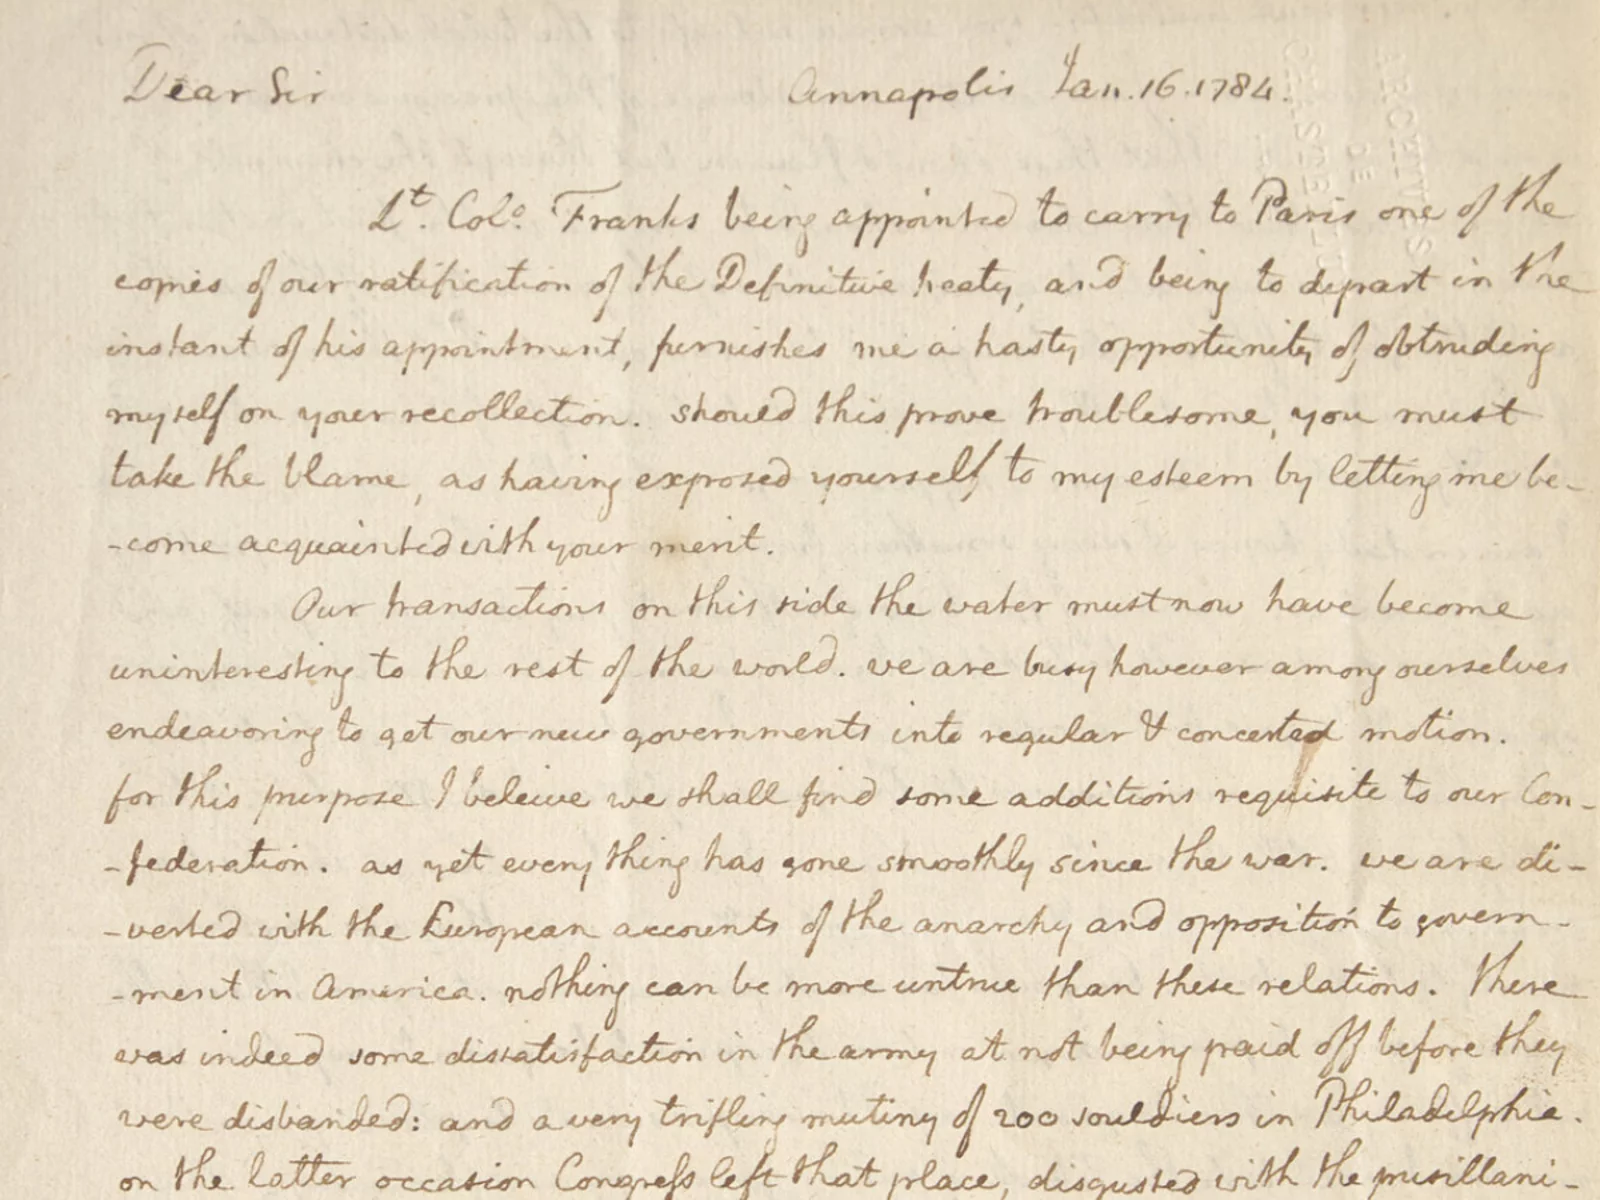 Dear Sir Annapolis Jan. 16. 1784.
Lt. Colo. Franks being appointed to carry to Paris one of the
copies of our ratification of the Definitive treaty, and being to depart in the
instant of his appointment, furnishes me a hasty opportunity of obtruding
myself on your recollection. should this prove troublesome, you must
take the blame, as having exposed yourself to my esteem by letting me be-
-come acquainted with your merit.
Our transactions on this side the water must now have become
uninteresting to the rest of the world. we are busy however among ourselves
endeavoring to get our new governments into regular & concerted motion.
for this purpose I beleive we shall find some additions requisite to our Con-
-federation. as yet every thing has gone smoothly since the war. we are di-
-verted with the European accounts of the anarchy and opposition to govern-
-ment in America. nothing can be more untrue than these relations. There
was indeed some dissatisfaction in the army at not being paid off before they
were disbanded: and a very trifling mutiny of 200 souldiers in Philadelphia.
on the latter occasion Congress left that place, disgusted with the pusillani-